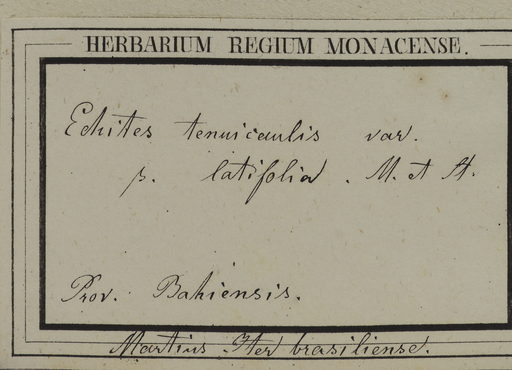 HERBARIUM REGIUM MONACENSE.
Echites tenuicaulis var.
β. latifolia. M. et St.
Prov. Bahiensis.
Martius Iter brasiliense.